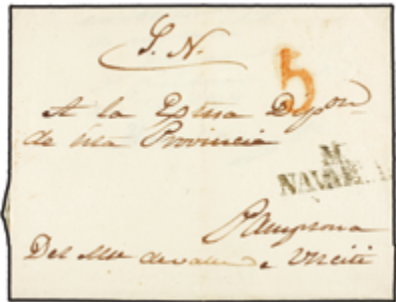 S. N.
5
A la Exma Dipon
de esta Provincia
M.
NAVARRA
Pamplona
Del Mte de